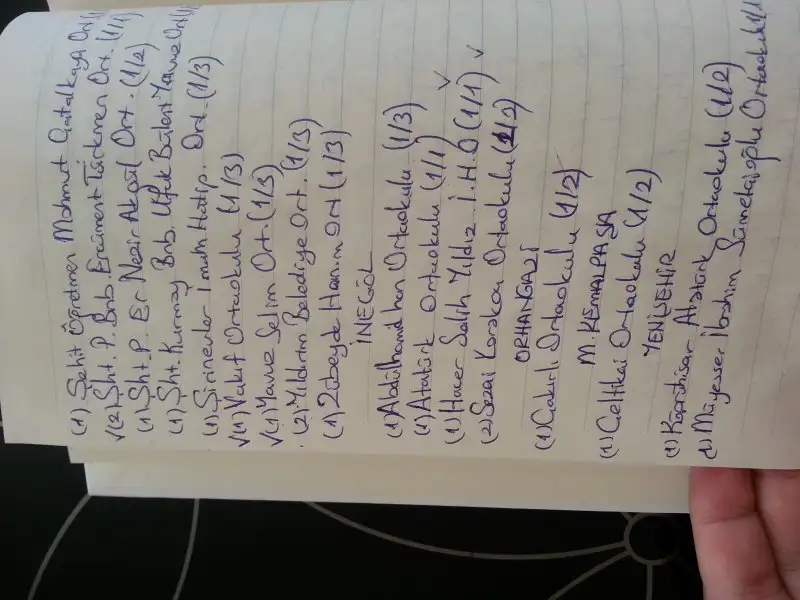 (1) Şehit Öğretmen Mahmut Çatalkaya Ort (1/
√(2) Şht. P. Bnb. Ercüment Türkmen Ort. (1/1)
(1) Şht. P. Er Nezir Akgül Ort. (1/2)
(1) Şht. Kurmay Bnb. Ufuk Bülent Yavuz Ort (1/
(1) Şirinevler İmam Hatip. Ort. (1/3)
√(1) Vakıf Ortaokulu (1/3)
√(1) Yavuz Selim Ort. (1/3)
(2) Yıldırım Belediye Ort. (1/3)
(1) Zübeyde Hanım Ort (1/3)
İNEGÖL
(1) Abdülhamid han Ortaokulu (1/3)
(1) Atatürk Ortaokulu (1/1) √
(1) Hacer Salih Yıldız İ.H.O (1/1) √
(2) Sezai Karakoç Ortaokulu (1/2)
ORHANGAZİ
(1) Çakırlı Ortaokulu (1/2)
M. KEMALPAŞA
(1) Çeltikçi Ortaokulu (1/2)
YENİŞEHİR
(1) Koprühisar Atatürk Ortaokulu (1/2)
(1) Müyesser İbrahim Sünnetçioğlu Ortaokulu 1/1